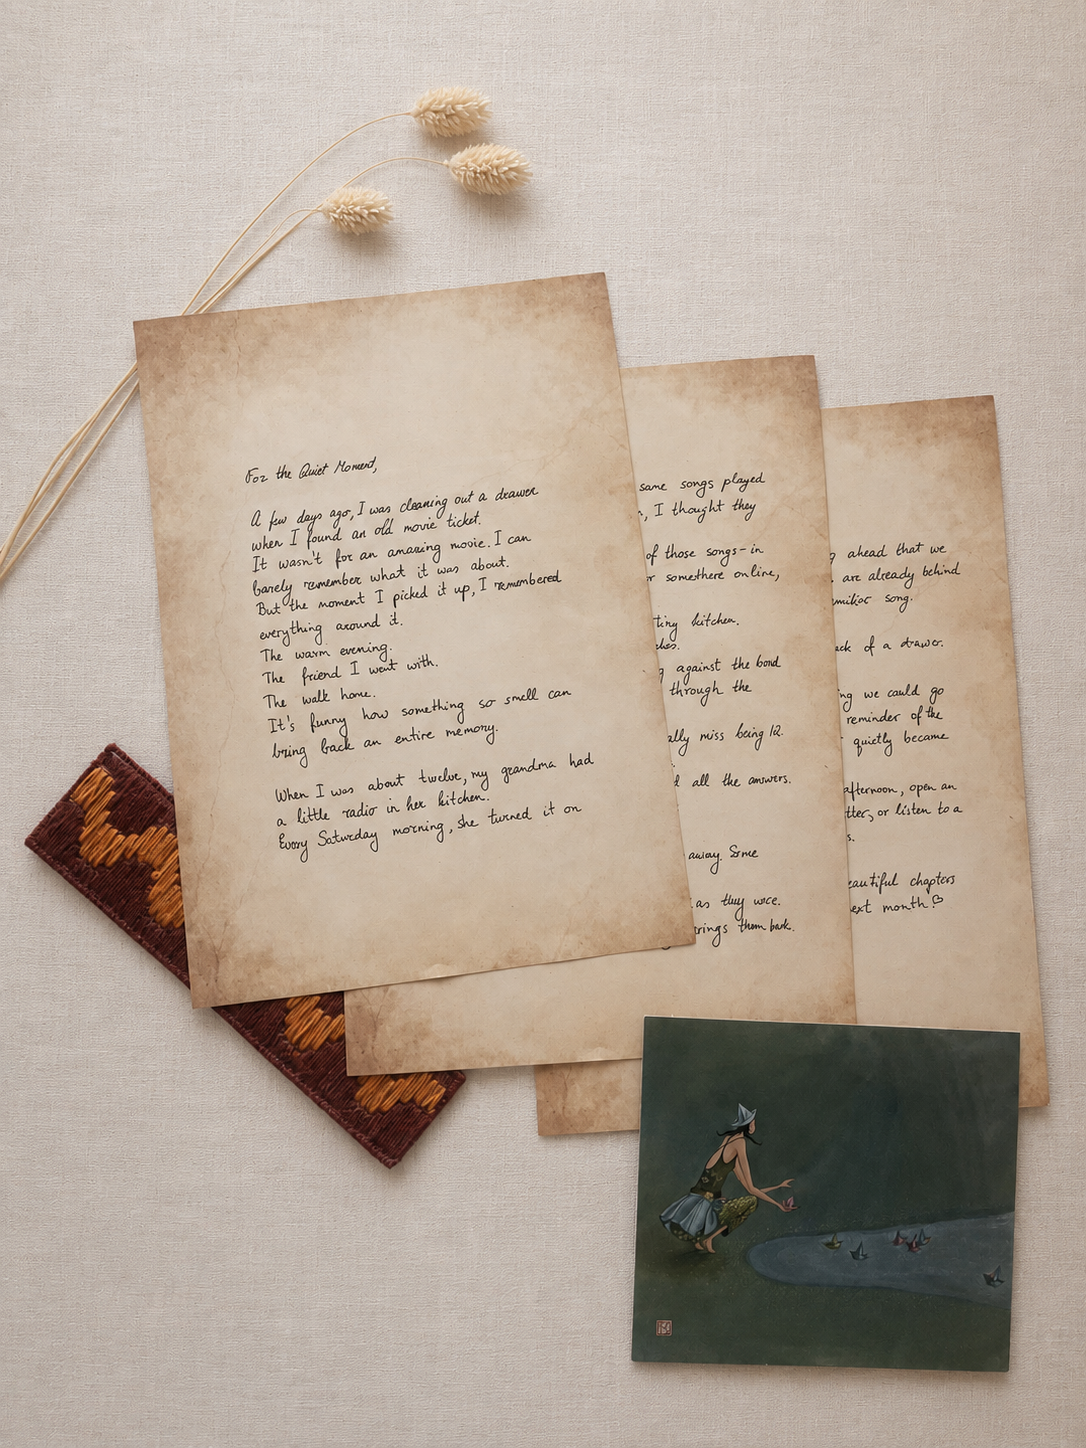 For the Quiet Moment,
A few days ago, I was cleaning out a drawer
when I found an old movie ticket.
It wasn't for an amazing movie. I can
barely remember what it was about.
But the moment I picked it up, I remembered
everything around it.
The warm evening.
The friend I went with.
The walk home.
It's funny how something so smell can
bring back an entire memory.
When I was about twelve, my grandma had
a little radio in her kitchen.
Every Saturday morning, she turned it on
same songs played
, I thought they
of those songs-in
or somethere online,
tiny kitchen.
ches.
g against the bond
through the
ally miss being 12.
d all the answers.
away. Some
as they were.
brings them back.
g ahead that we
are already behind
amiliar song.
ack of a drawer.
ng we could go
reminder of the
quietly became
afternoon, open an
tter, or listen to a
s.
eautiful chapters
ext month.